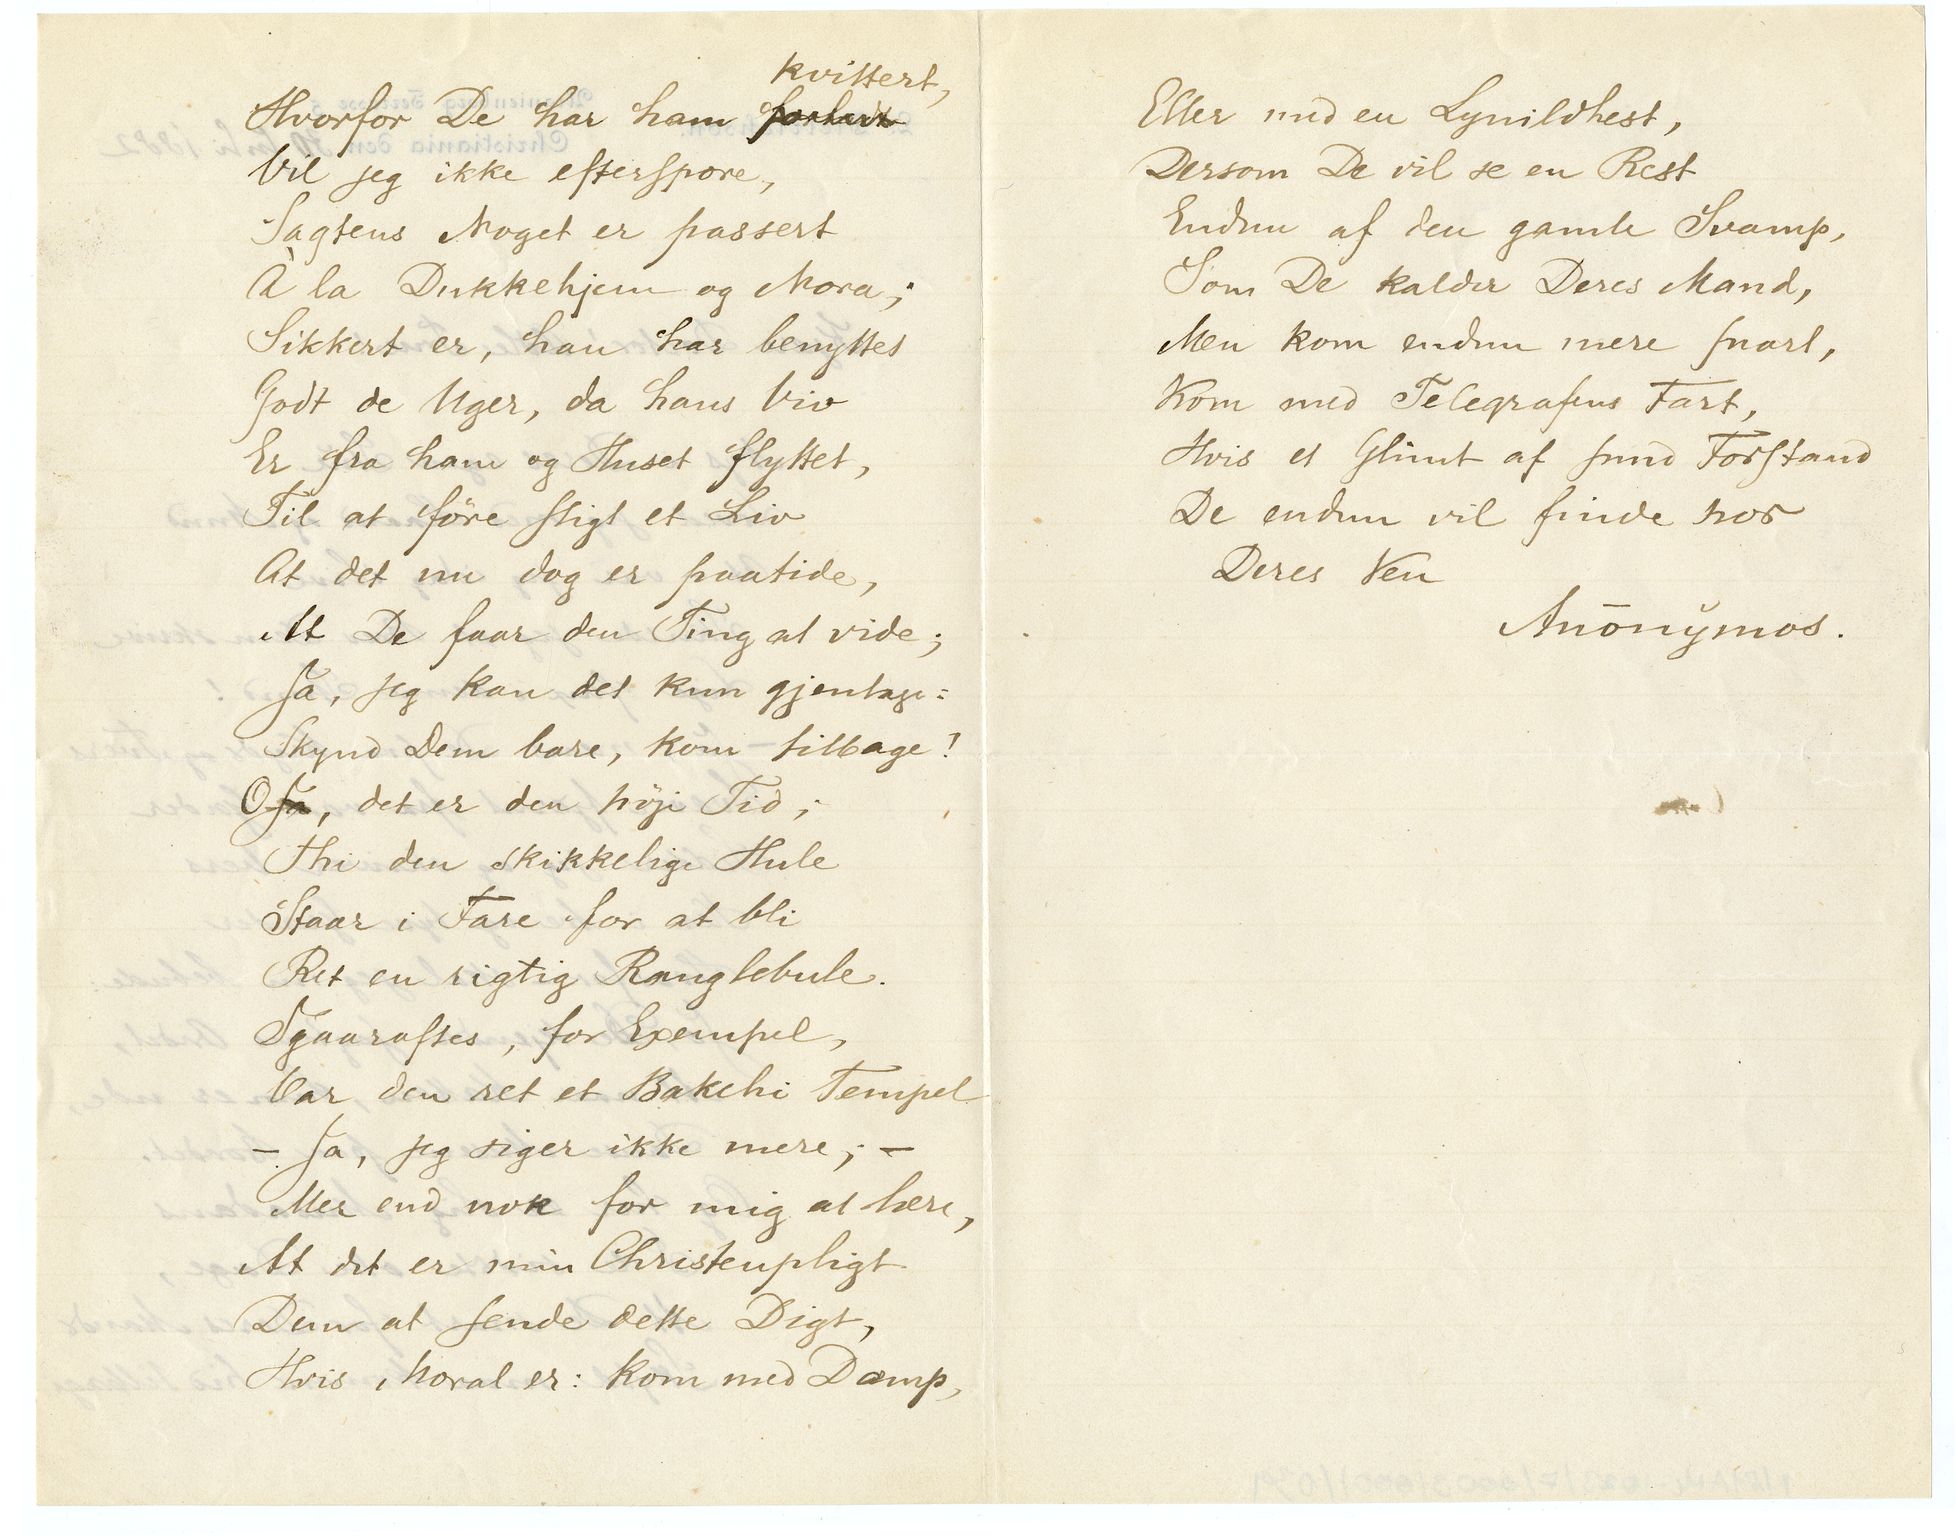 Hvorfor De har ham forladt kvittert,
Vil jeg ikke efterspore,
Sagtens Noget er passert
À la Dukkehjem og Nora;
Sikkert er, han har benyttet
Godt de Uger, da hans Viv
Er fra ham og Huset flyttet,
Til at före sligt et Liv
At det nu dog er paatide,
At De faar den Ting at vide;
Ja, jeg kan det kun gjentage:
Skynd Dem bare, kom tilbage!
O Ja, det er den höje Tid;
Thi den skikkelige Hule
Staar i Fare for at bli
Ret en rigtig Ranglebule.
Igaaraftes, for Exempel,
Var den ret et Bakchi Tempel
– Ja, jeg siger ikke mere; –
Mer end nok for mig at lære,
At det er min Christenpligt
Dem at sende dette Digt,
Hvis Moral er: Kom med Damp,
Eller med en Lynildhest,
Dersom De vil se en Rest
Endnu af den gamle Svamp,
Som De kalder Deres Mand,
Men kom endnu mere snart,
Kom med Telegrafens Fart,
Hvis et Glimt af sund Forstand
De endnu vil finde hos
Deres Ven
Anōnўmos.